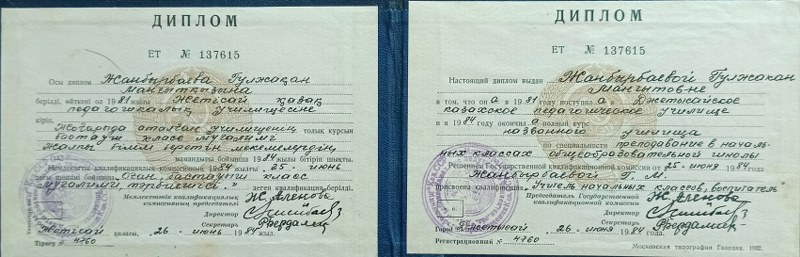 ДИПЛОМ
ЕТ № 137615
Осы диплом Жанбырбаева Гулжақан
Мангытқызына
берілді, өйткені ол 1981 жылы Жетісай қазақ
педагогикалық училищесіне
кіріп,
Жоғарыда аталған училищенің толық курсын
бастауыш класс мұғалімі
Жалпы білім беретін мекемелердің
мамандығы бойынша 1984 жылы бітіріп шықты.
Мемлекеттік квалификациялық комиссияның 1984 жылғы 25 июнь
класс
мұғалімі, тәрбиешісі." деген квалификация берілді.
Мемлекеттік квалификациялық
комиссияның председателі
Директор
Секретарь
Жетісай қаласы, 26 июнь 1984 жыл.
Тіркеу № 4760
ДИПЛОМ
ЕТ № 137615
Настоящий диплом выдан Жанбырбаевой Гулжакан
Мангитовне
в том, что она в 1981 году поступила в Джетысайское
казахское педагогическое училище
и в 1984 году окончила полный курс
названного училища
по специальности преподавание в началь-
ных классах общеобразовательной школы
Решением Государственной квалификационной комиссии от 25 июня 1984 года
Жанбырбаевой Г. М.
присвоена квалификация "Учитель начальных классов, воспитатель"
Председатель Государственной
квалификационной комиссии
Директор
Секретарь
Город Жетысай 26 июня 1984 года
Регистрационный № 4760
Московская типография Гознака. 1982.